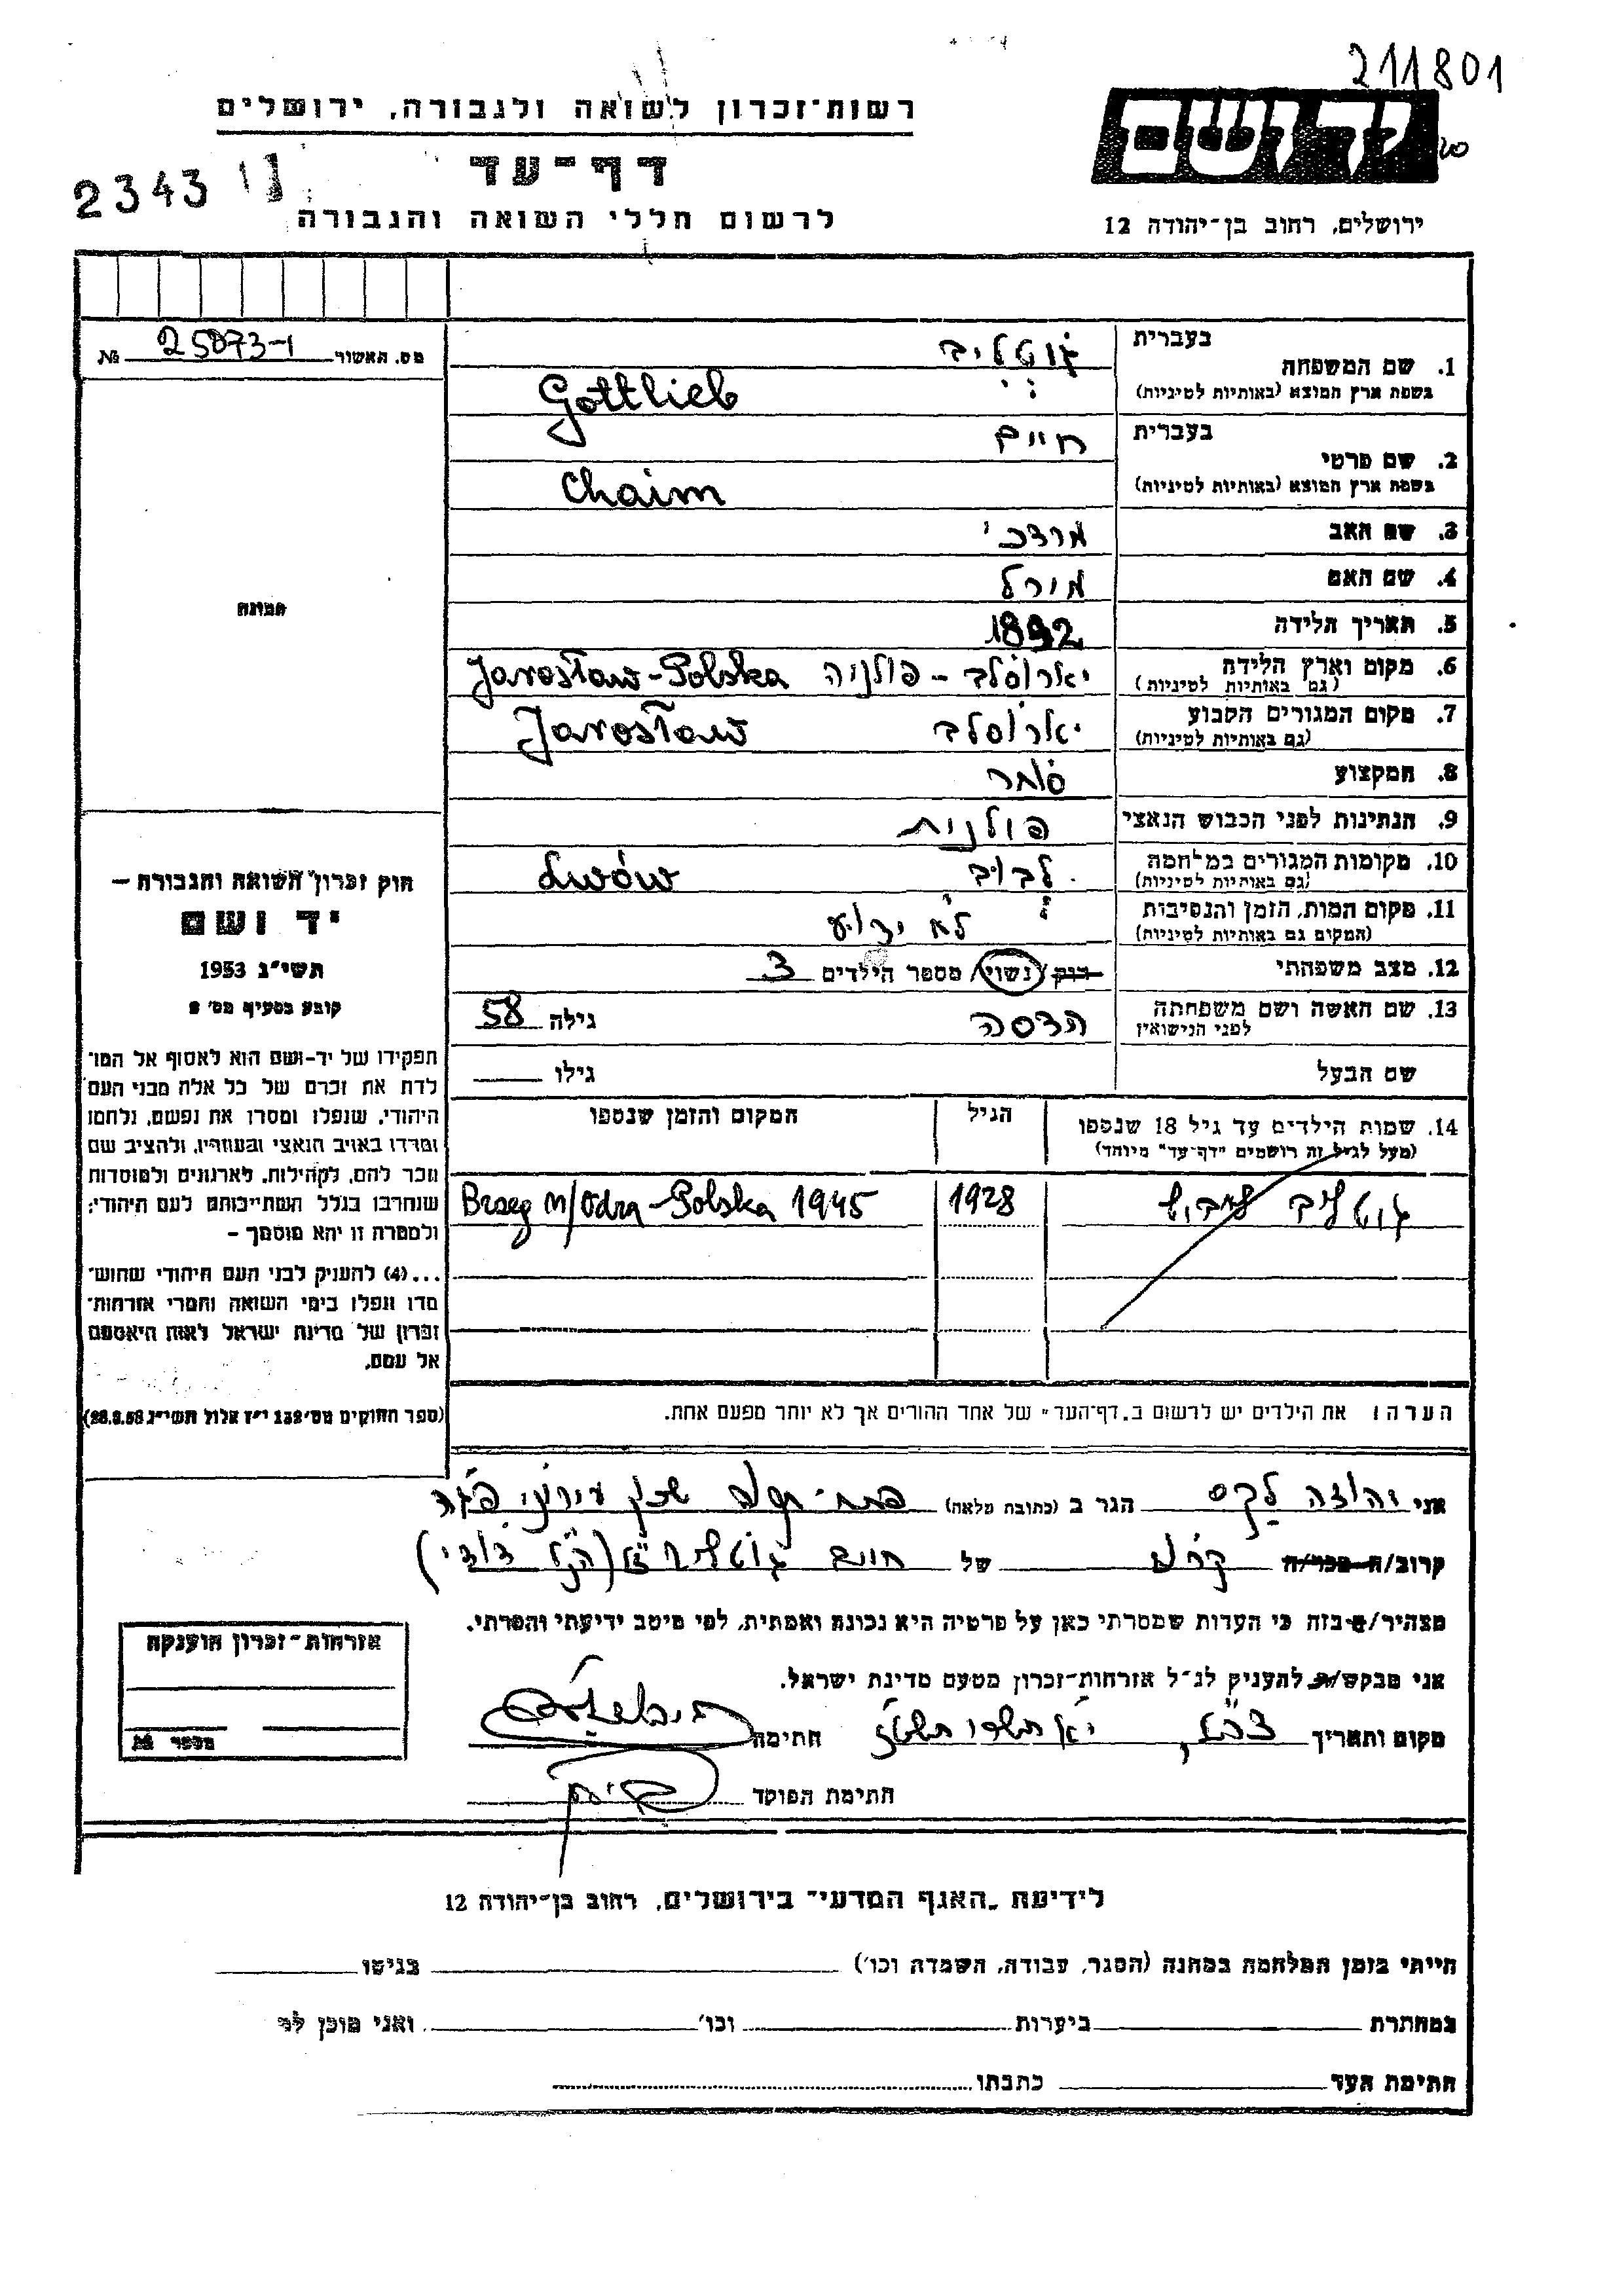 211801
רשות-זכרון לשואה ולגבורה, ירושלים
יד ושם
20
דף-עד
2343
לרשום חללי השואה והגבורה
ירושלים, רחוב בן-יהודה 12
מס. האשור 25873-1 №
בעברית
גוטליב
1. שם המשפחה
בשפת ארץ המוצא (באותיות לטיניות)
Gottlieb
בעברית
חיים
2. שם פרטי
בשפת ארץ המוצא (באותיות לטיניות)
Chaim
3. שם האב
מרדכי
4. שם האם
מירל
5. תאריך הלידה
1892
6. מקום וארץ הלידה
(גם באותיות לטיניות)
יארוסלב - פולניה Jarosław-Polska
7. מקום המגורים הקבוע
(גם באותיות לטיניות)
יארוסלב Jarosław
8. המקצוע
סוחר
9. הנתינות לפני הכבוש הנאצי
פולנית
10. מקומות המגורים במלחמה
(גם באותיות לטיניות)
לבוב Lwów
11. מקום המות, הזמן והנסיבות
(המקום גם באותיות לטיניות)
לא ידוע
12. מצב משפחתי
רוק/נשוי/ מספר הילדים 3
13. שם האשה ושם משפחתה
לפני הנישואין
הדסה גילה 58
שם הבעל גילו
14. שמות הילדים עד גיל 18 שנספו
(מעל לגיל זה רושמים "דף-עד" מיוחד)
הגיל
המקום והזמן שנספו
גוטליב 1928 Brzeg n/Odrą-Polska 1945
הערה: את הילדים יש לרשום ב„דף-העד" של אחד ההורים אך לא יותר מפעם אחת.
תמונה
חוק זכרון השואה והגבורה –
יד ושם
תשי"ג 1953
קובע בסעיף מס' 2
תפקידו של יד-ושם הוא לאסוף אל המו־
לדת את זכרם של כל אלה מבני העם
היהודי, שנפלו ומסרו את נפשם, נלחמו
ומרדו באויב הנאצי ובעוזריו, ולהציב שם
וזכר להם, לקהילות, לארגונים ולמוסדות
שנחרבו בגלל השתייכותם לעם היהודי;
ולמטרה זו יהא מוסמך –
...(4) להעניק לבני העם היהודי שהוש־
מדו ונפלו בימי השואה והמרי אזרחות־
זכרון של מדינת ישראל לאות היאספם
אל עמם.
(ספר החוקים מס' 132 י"ז אלול תשי"ג 28.8.53)
אני יהודה הגר ב (כתובת מלאה) שכון
קרוב/ה מכר/ה של חיים גוטליב (דודי)
מצהיר/ה בזה כי העדות שמסרתי כאן על פרטיה היא נכונה ואמתית, לפי מיטב ידיעתי והכרתי.
אני מבקש/ת להעניק לנ"ל אזרחות-זכרון מטעם מדינת ישראל.
מקום ותאריך חתימה
חתימת הפוקד
אזרחות-זכרון הוענקה
מספר №
לידיעת „האגף המדעי" בירושלים, רחוב בן-יהודה 12
הייתי בזמן המלחמה במחנה (הסגר, עבודה, השמדה וכו') בגיטו
במחתרת ביערות וכו' ואני מוכן לך
חתימת העד כתבתו